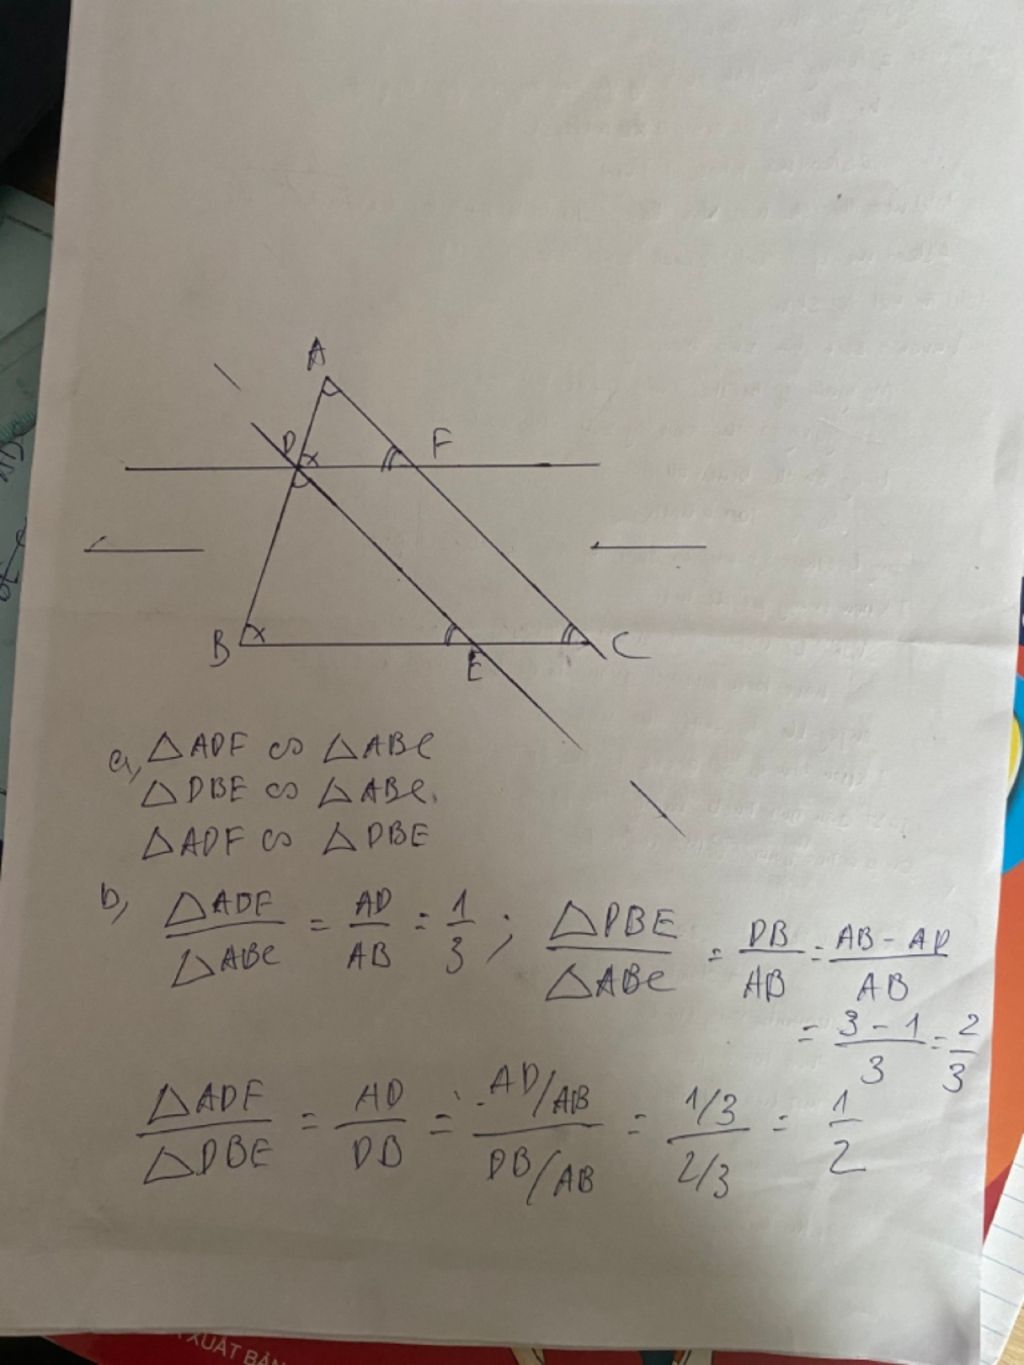 A
D x F
B x E C
a, △ADF ∽ △ABC
△DBE ∽ △ABC.
△ADF ∽ △DBE
b, △ADF/△ABC = AD/AB = 1/3 ; △DBE/△ABC = DB/AB = AB - AD/AB
= 3 - 1/3 = 2/3
△ADF/△DBE = AD/DB = AD/AB/DB/AB = 1/3/2/3 = 1/2
XUẤT BẢN